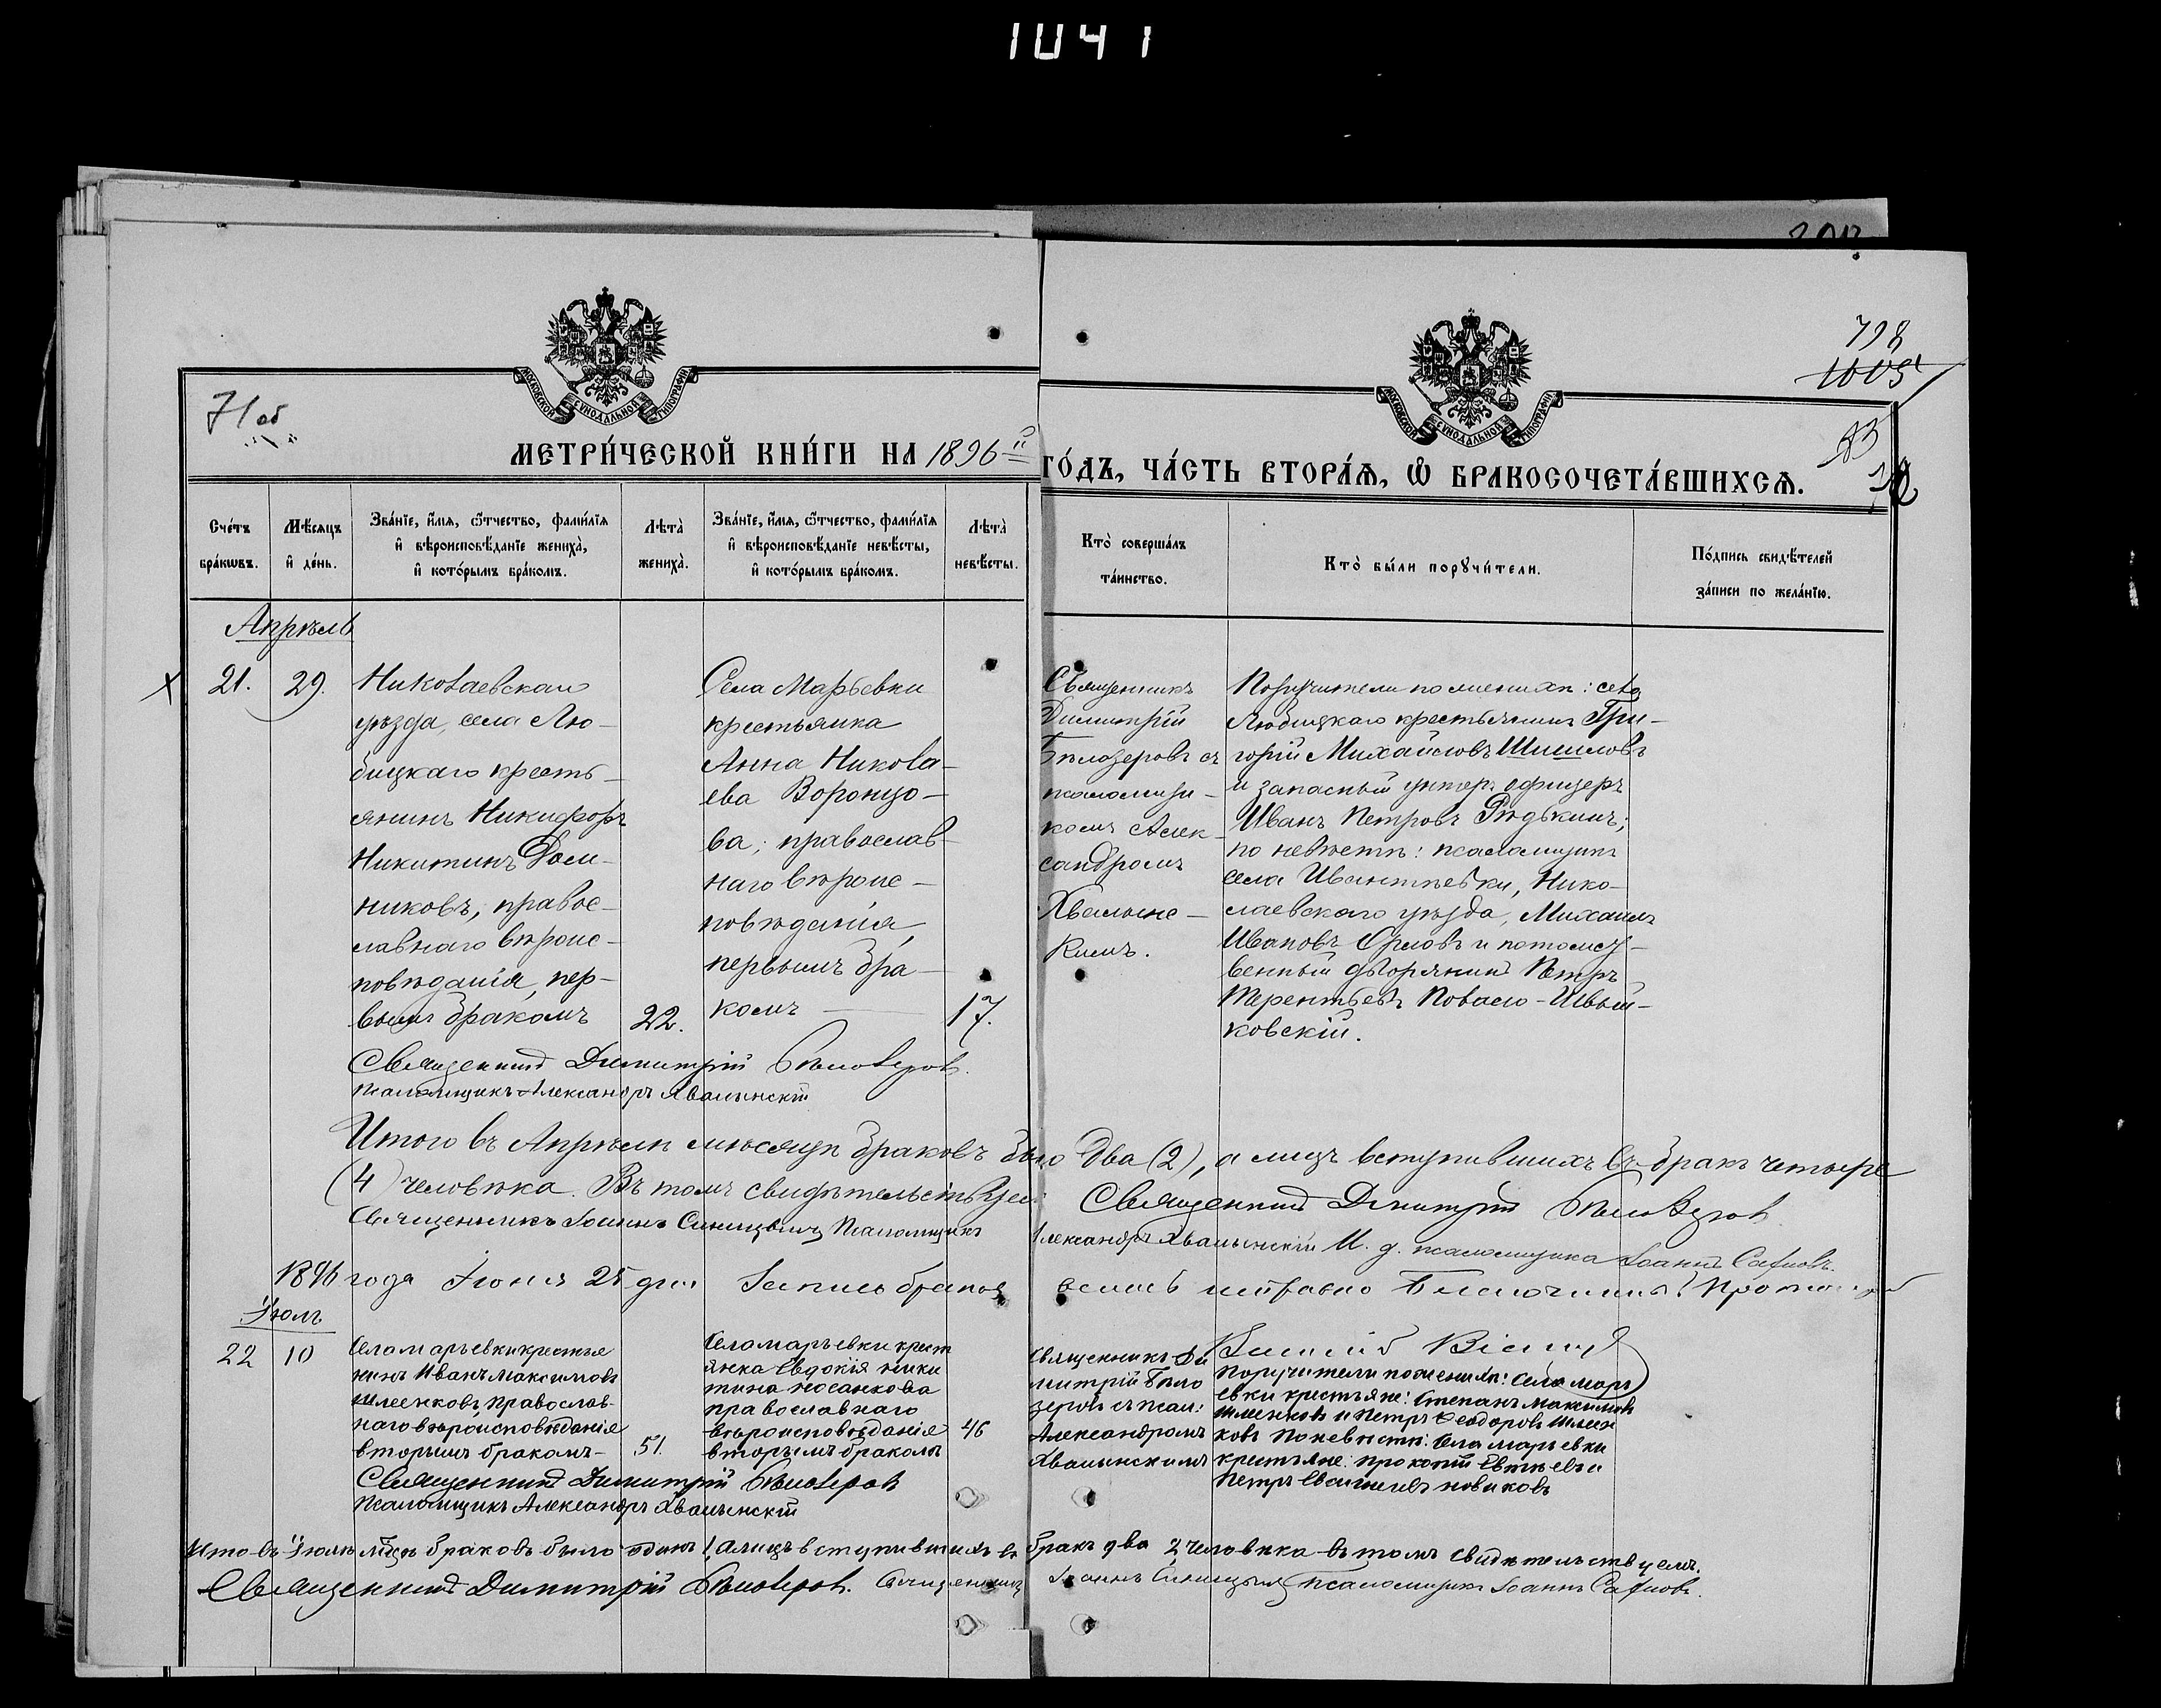 1041
798
1005
83
71 об
МЕТРИ́ЧЕСКОЙ КНИ́ГИ НА 1896 й
ГО́ДЪ, ЧА́СТЬ ВТОРА́Ѧ, Ѽ БРАКОСОЧЕТА́ВШИХСѦ.
МОСКОВСКОЙ СѴНОДАЛЬНОЙ ТИПОГРАФІИ
МОСКОВСКОЙ СѴНОДАЛЬНОЙ ТИПОГРАФІИ
Сче́тъ бра́кѡвъ.
Мѣ́сѧцъ и҆ де́нь.
Зва́нїе, и҆́мѧ, ѻ҆́тчество, фами́лїѧ и҆ вѣроисповѣ́данїе жениха̀, и҆ кото́рымъ бра́комъ.
Лѣта̀ жениха̀.
Зва́нїе, и҆́мѧ, ѻ҆́тчество, фами́лїѧ и҆ вѣроисповѣ́данїе невѣ́сты, и҆ кото́рымъ бра́комъ.
Лѣта̀ невѣ́сты.
Кто̀ соверша́лъ та́инство.
Кто̀ бы́ли порꙋчи́тели.
По́дпись свидѣ́телей за́писи по жела́нїю.
Апрѣль
21.
29.
Николаевскаго
уѣзда, села Лю-
бицкаго кресть-
янинъ Никифоръ
Никитинъ Доли-
никовъ, правос-
лавнаго вѣроис-
повѣданія, пер-
вымъ бракомъ
22.
Села Марьевки
крестьянка
Анна Никола-
ева Воронцо-
ва; православ-
наго вѣроис-
повѣданія,
первымъ бра-
комъ
17.
Священникъ
Димитрій
Бѣлозеровъ съ
псаломщи-
комъ Алек-
сандромъ
Хвалынс-
кимъ.
Поручители по женихѣ: села
Любицкаго крестьянинъ Гри-
горій Михайловъ Шишловъ
и запасный унтеръ офицеръ
Иванъ Петровъ Рѣдькинъ;
по невѣстѣ: псаломщикъ
села Ивантѣевки, Нико-
лаевскаго уѣзда, Михаилъ
Ивановъ Орловъ и потомст-
венный дворянинъ Петръ
Терентьевъ Повало-Швый-
ковскій.
Священникъ Димитрій Бѣлозеровъ.
Псаломщикъ Александръ Хвалынскій
Итого въ Апрѣлѣ мѣсяцѣ браковъ было два (2), а лицъ вступившихъ въ бракъ четыре
(4) человѣка. Въ томъ свидѣтельствуемъ Священникъ Димитрій Бѣлозеровъ
Священникъ Іоаннъ Синицынъ Псаломщикъ Александръ Хвалынскій И. д. псаломщика Іоаннъ
1896 года Іюня 25 дня Запись браковъ велась исправно Благочинный
Іюль
22
10
Села марьевки крестья
нинъ Иванъ Максимовъ
Шленковъ православ-
наго вѣроисповѣданія
вторымъ бракомъ-
51.
Села марьевки крест
янка Евдокія ники
тина носанкова
православнаго
вѣроисповѣданія
вторымъ бракомъ
46
Священникъ Ди
митрій Бѣло
зеровъ съ псал:
Александромъ
Хвалынскимъ
Поручители по женихѣ: Села марь
евки крестьяне: Степанъ Максимовъ
Шленковъ и Петръ Феодоровъ Шлен
ковъ По невѣстѣ: Села марьевки
крестьяне: прокопій и
Петръ новиковъ
Священникъ Димитрій Бѣлозеровъ
Псаломщикъ Александръ Хвалынскій
Итого въ Іюлѣ мѣсцѣ браковъ было одинъ 1, а лицъ вступившихъ въ бракъ два 2 человѣка въ томъ свидѣтельствуемъ.
Священникъ Димитрій Бѣлозеровъ. Священникъ Іоаннъ Синицынъ Псаломщикъ Іоаннъ